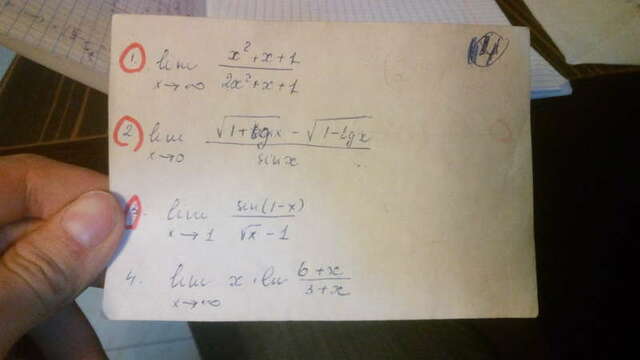 1. lim x→∞ (x²+x+1)/(2x²+x+1)
2. lim x→0 (√(1+tgx) - √(1-tgx))/sinx
3. lim x→1 sin(1-x)/(√x - 1)
4. lim x→∞ x·ln (6+x)/(3+x)